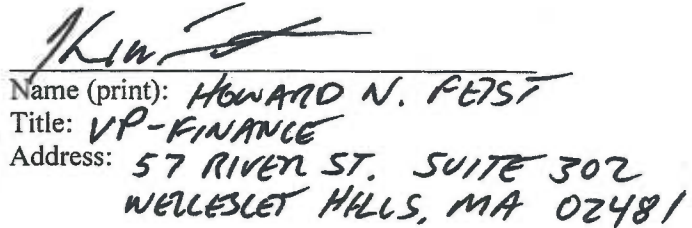 Name (print): HOWARD N. FEIST
Title: VP-FINANCE
Address: 57 RIVER ST. SUITE 302
WELLESLEY HILLS, MA 02481